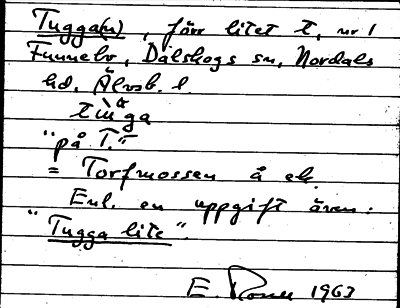 Tugga(n), förr litet t, nr 1
Funnebo, Dalskogs sn, Nordals
hd. Älvsb. l.
tùga
"på T."
= Torfmossen å ek.
Enl. en uppgift även:
"Tugga lite".
E. 1963